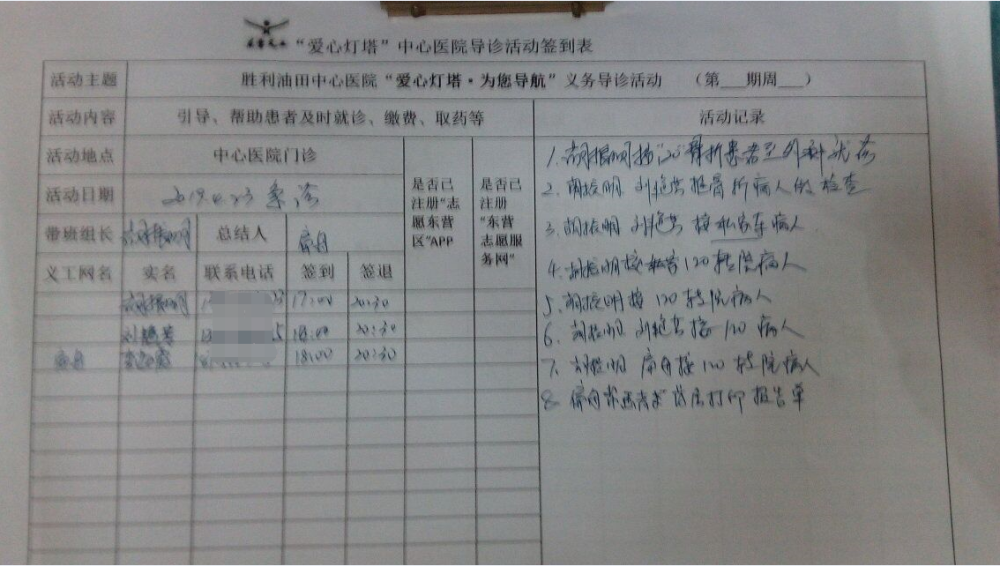 “爱心灯塔”中心医院导诊活动签到表
活动主题 胜利油田中心医院“爱心灯塔·为您导航”义务导诊活动 （第___期周___）
活动内容 引导、帮助患者及时就诊、缴费、取药等 活动记录
活动地点 中心医院门诊
活动日期 2019.4.23 急诊
带班组长 胡振明 总结人
是否已注册“志愿东营区”APP
是否已注册“东营志愿服务网”
义工网名 实名 联系电话 签到 签退
胡振明 17:00 20:30
刘艳芳 18:00 20:30
18:00 20:30
1. 胡振明接120骨折患者至外科就诊
2. 胡振明 刘艳芳 推骨折病人做检查
3. 胡振明 刘艳芳 接私家车病人
4. 胡振明接 120转院病人
5. 胡振明接120转院病人
6. 胡振明 刘艳芳接120病人
7. 胡振明 接120转院病人
8. 打印报告单